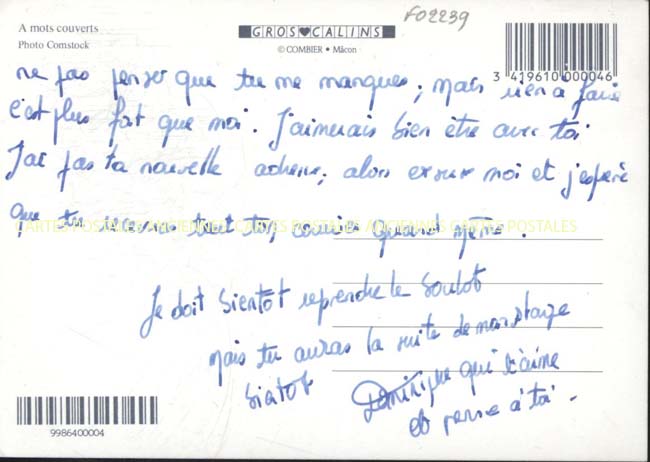 A mots couverts
Photo Comstock
GROS♥CALINS
© COMBIER • Mâcon
F02239
3 419610 000046
ne pas penser que tu me manques, mais rien a faire
c'est plus fort que moi. J'aimerais bien être avec toi
J'ai pas ta nouvelle adresse, alors excuse moi et j'espère
que tu recevras tout ton courrier quand même.
CARTES POSTALES ANCIENNES CARTES POSTALES ANCIENNES CARTES POSTALES
Je doit bientôt reprendre le boulot
mais tu auras la suite de mon stage
biatot Dominique qui t'aime
et pense à toi.
9986400004